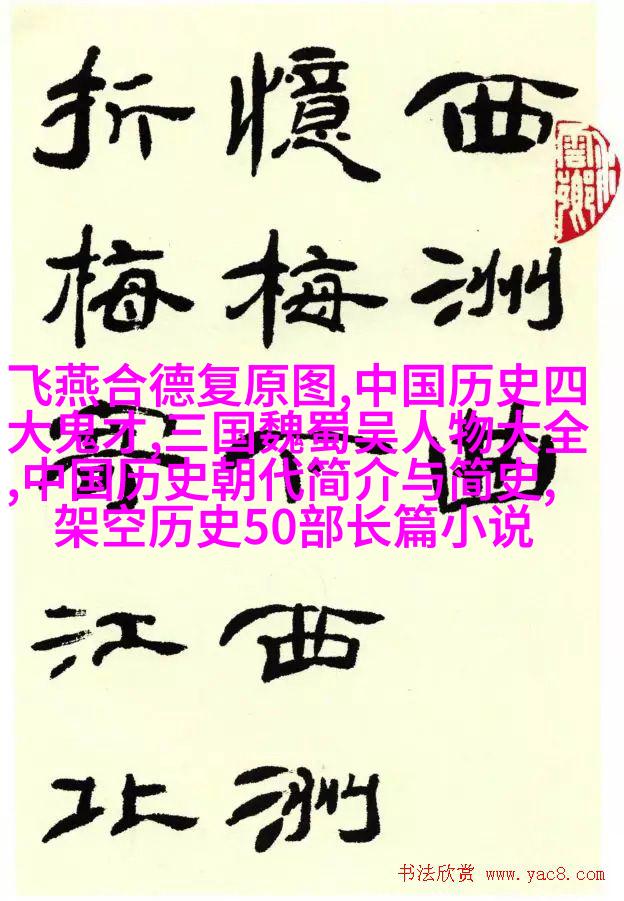 西洲曲
憶梅下西洲
折梅寄江北
飞燕合德复原图,中国历史四
大鬼才,三国魏蜀吴人物大全
,中国历史朝代简介与简史,
架空历史50部长篇小说
书法欣赏 www.yac8.com